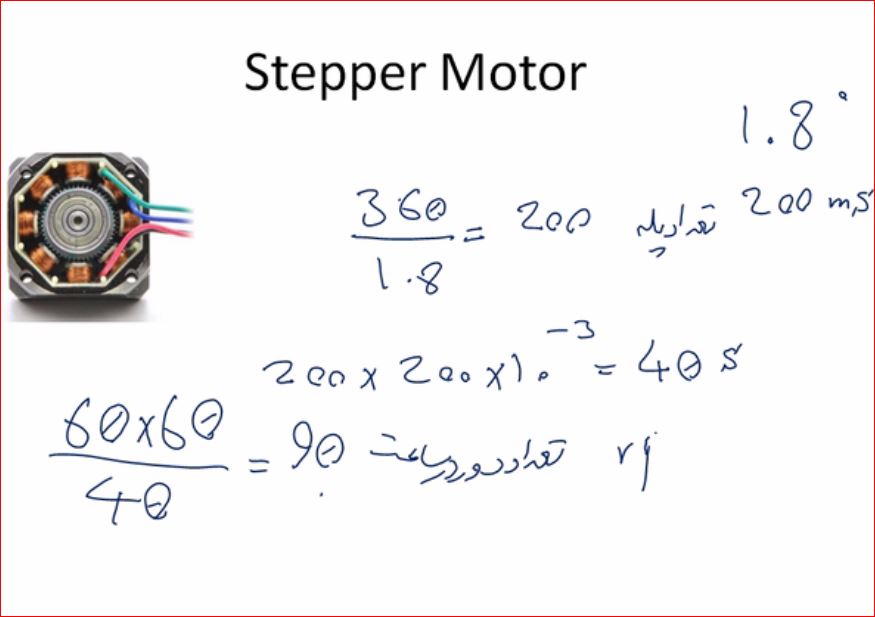 Stepper Motor
1.8°
360/1.8 = 200 تعداد پله 200 ms
200 x 200 x 10⁻³ = 40 s
60x60/40 = 90 تعداد دور در ساعت